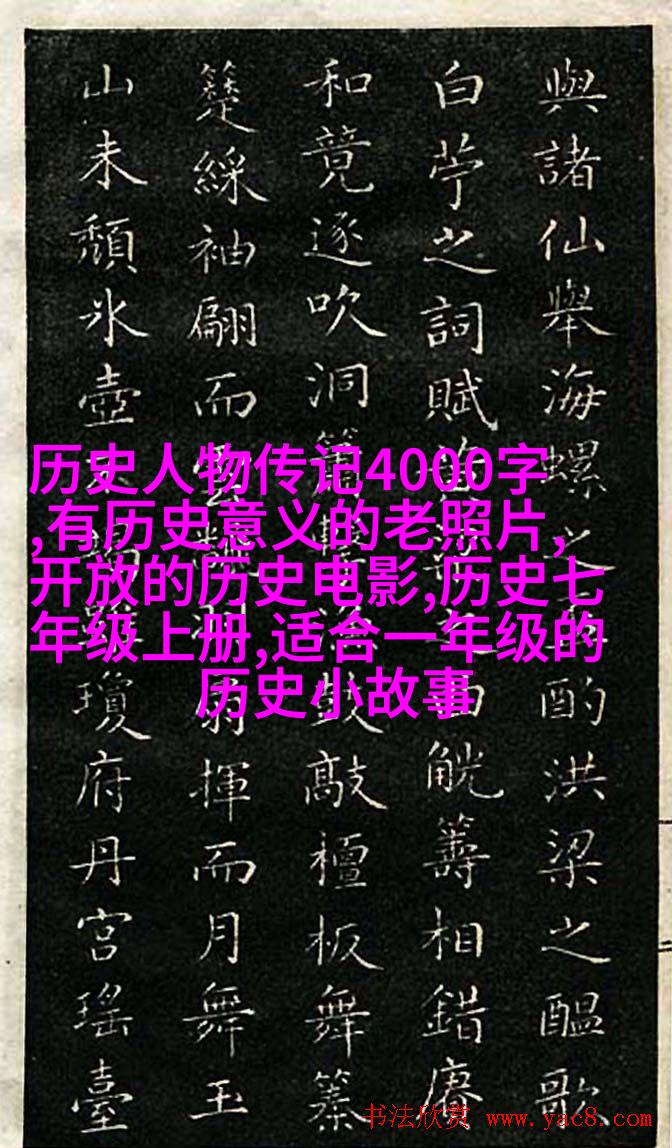 與諸仙舉海螺之酌洪梁之醞歌
白苧之詞賦觥籌相錯賡
和竟逐吹洞簫鼓敲檀板舞
綵袖翩而雲扇揮而月舞玉
山未頹氷壺瓊府丹宮瑤臺
历史人物传记4000字
,有历史意义的老照片,
开放的历史电影,历史七
年级上册,适合一年级的
历史小故事
书法欣赏 www.yac8.com